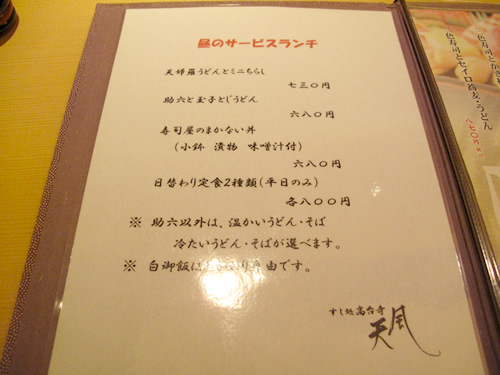 昼のサービスランチ
天婦羅うどんとミニちらし
七三〇円
助六と玉子とじうどん
六八〇円
寿司屋のまかない丼
(小鉢 漬物 味噌汁付)
六八〇円
日替わり定食2種類(平日のみ)
各八〇〇円
※ 助六以外は、温かいうどん・そば
冷たいうどん・そばが選べます。
※ 白御飯は 自由です。
すし処 高台寺
天風
色寿司とセイロ蕎麦・うどん
八七〇円